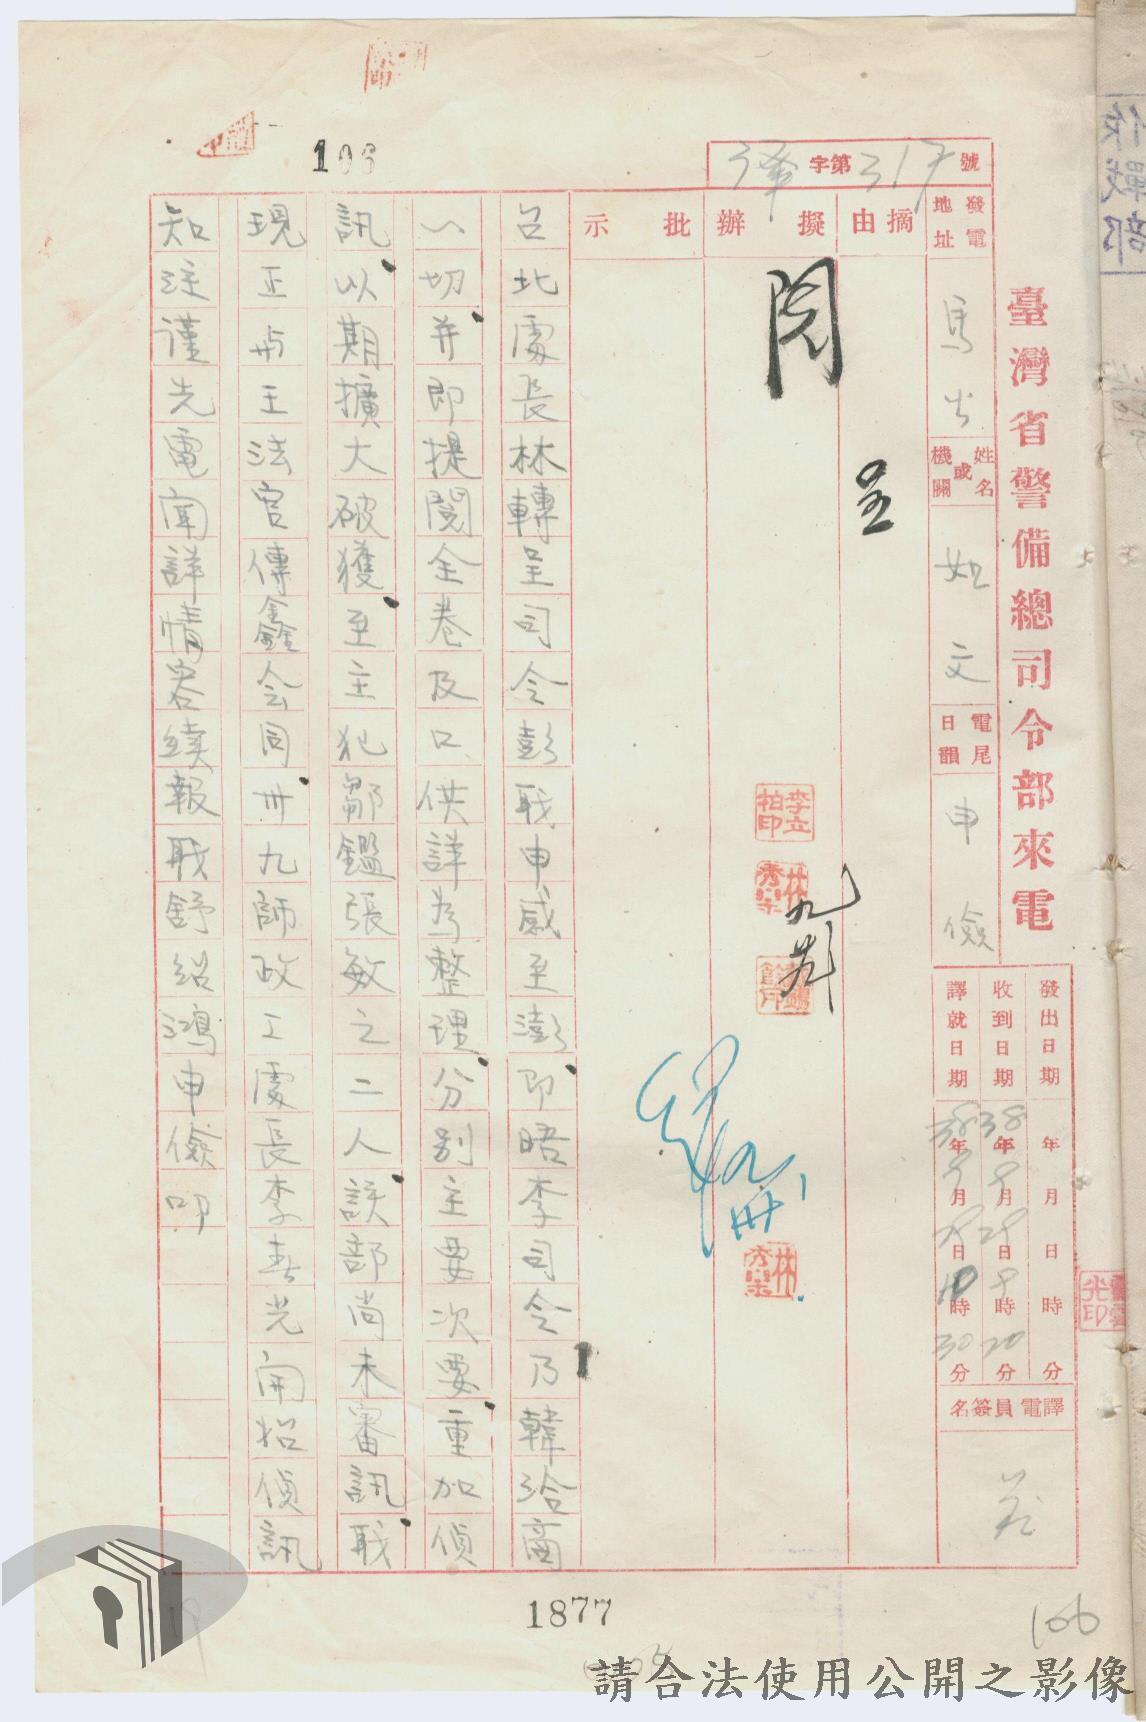 臺灣省警備總司令部來電
字第317號
發電地址
馬公
姓名或機關
如文
電尾日韻
申儉
發出日期 年 月 日 時 分
收到日期 38年9月29日9時20分
譯就日期 38年9月29日10時30分
譯電員簽名
摘由
擬辦
批示
呈
閱
李立柏印
九卅
106
台北處長林轉呈司令彭職申感至澎即晤李司令乃韓洽商
一切并即提閱全卷及口供詳為整理分別主要次要重加偵
訊以期擴大破獲至主犯鄒鑑張敏之二人該部尚未審訊職
現正與王法官傳鑫会同卅九師政工處長李春光開始偵訊
知注謹先電聞詳情容續報職舒紹鴻申儉叩
作戰部
1877
106
請合法使用公開之影像